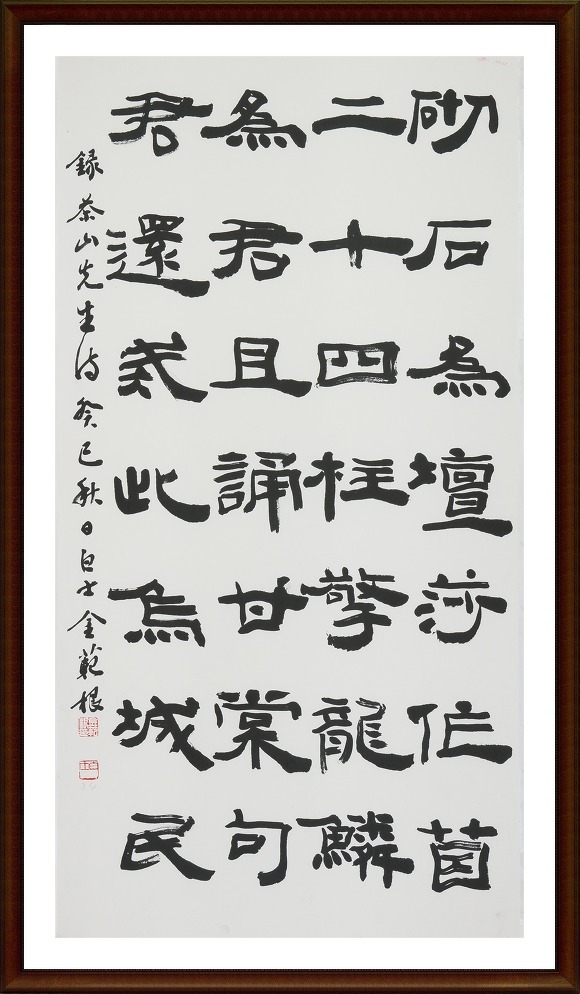 砌石為壇莎作茵
二十四柱擎龍鱗
為君且誦甘棠句
君還此烏城民
錄茶山先生詩癸巳秋日白士金範根